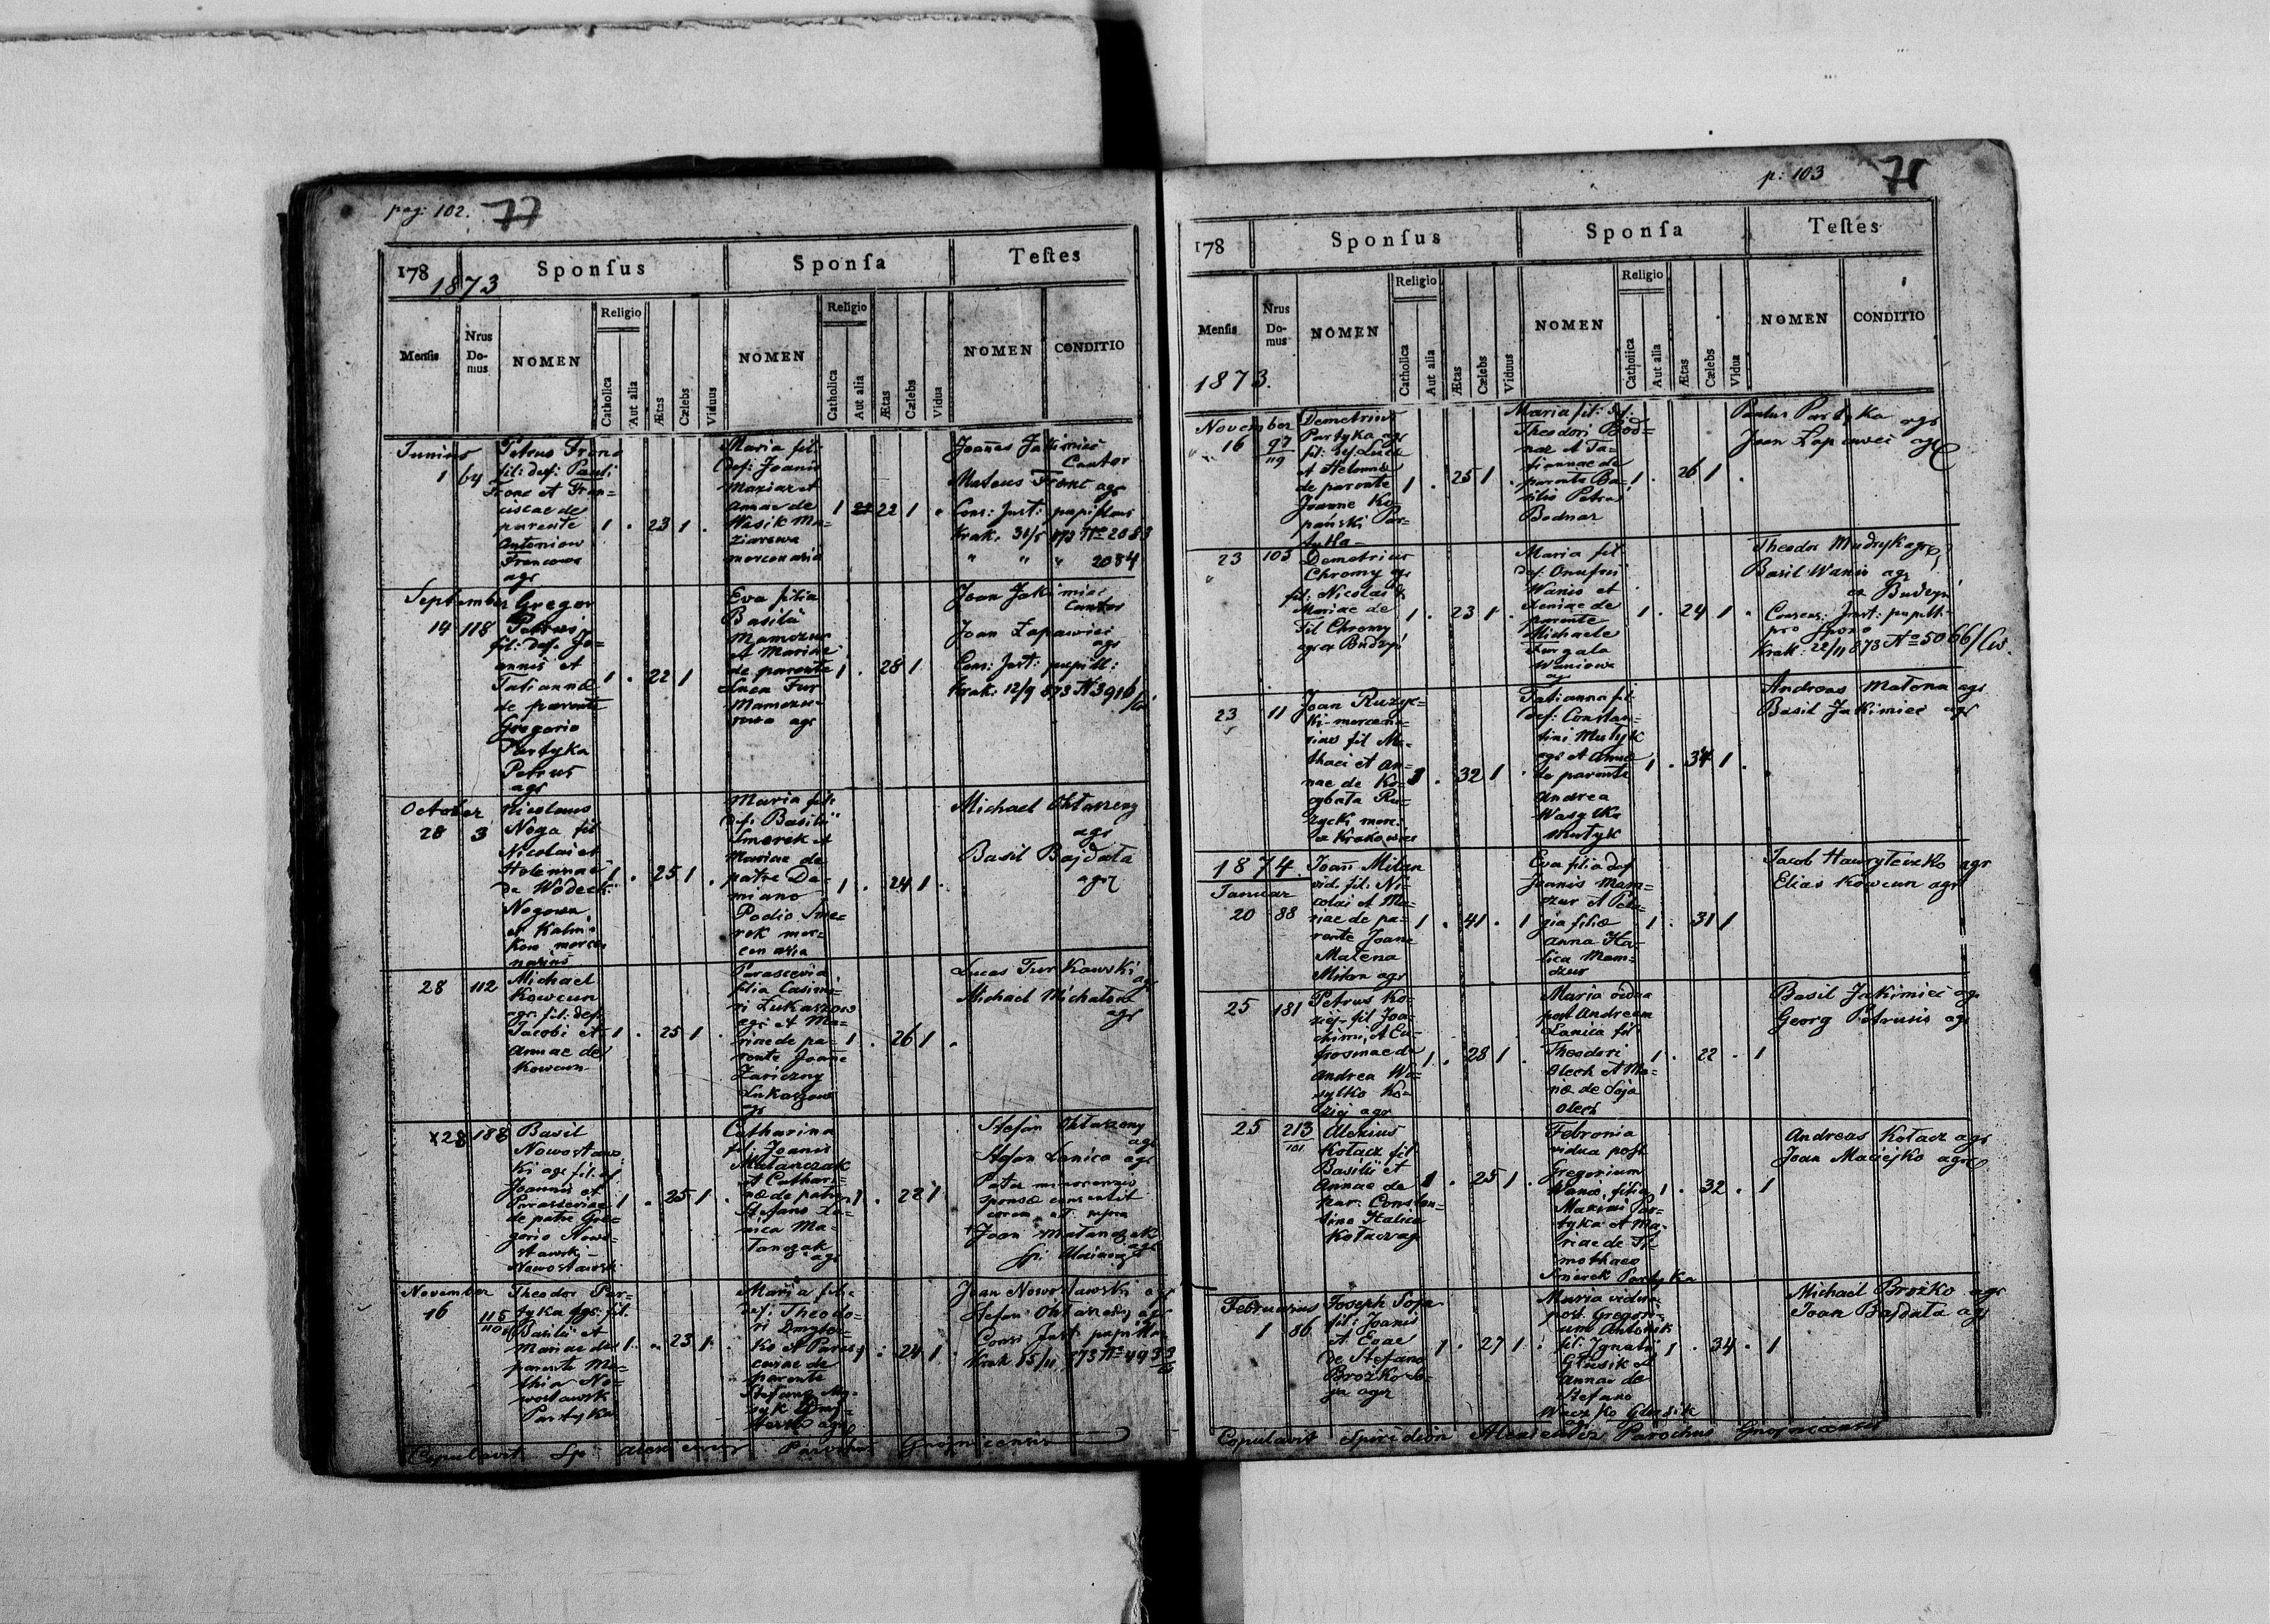 pag: 102. 77
178 1873 Sponsus Sponsa Testes
Mensis Nrus Domus NOMEN Religio Catholica Aut alia Ætas Cælebs Viduus NOMEN Religio Catholica Aut alia Ætas Cælebs Vidua NOMEN CONDITIO
Junius
1 64
Petrus Franc
fil: def: Pauli
Franc et Fran=
ciscae de
parente
Antoniow
Francowa
agr
1 . 23 1 .
Maria fil:
def: Joanis
Maziar et
Annae de
Wasik Ma=
ziarowa
mercenaria
1 22 1 .
Joannes Jakimiec
Cantor
Mateus Franc agr
Cons: Just: pupillari
Krak. 31/5 873 No 2083
" " " 2084
September
14 118
Gregor
Petrus
fil: def. Jo=
annis et
Tatiannæ
de parente
Gregorio
Partyka
Petrus
agr
1 . 22 1
Eva filia
Basilii
Mamczur
et Mariae
de parente
Luca Fur
Mamczu=
rowa agr
1 . 28 1
Joan Jakimiec
Cantor
Joan Łapawiec
agr
Cons: Just: pupill:
Krak: 12/9 873 N 3916
October
28 3
Nicolaus
Noga fil
Nicolai et
Helennae
de Wodecki
Nogowa
ex Kalni=
kow merce
narius
1 . 25 1 .
Maria fil:
def: Basilii
Smerek et
Mariae de
patre Da=
miano
Podio Sme=
rek mer=
cenaria
1 . 24 1 .
Michael Oktarzeny
agr
Basil Bajdała
agr
28 112
Michael
Kowcun
agr. fil: def.
Jacobi et
Annae de
Kowcun
1 . 25 1 .
Parascevia
filia Casimi=
ri Łukaszow
agr et Ma=
riae de pa=
rente Joane
Zariczny
Łukaszow
agr
1 . 26 1 .
Lucas Turkowski
agr
Michael Michałow
agr
x28 188
Basil
Nowostaws
ki agr fil. def
Joannis et
Parasceviae
de patre Gre=
gorio Nowo=
stawski
Nowostawski
1 . 25 1 .
Catharina
fil: Joanis
Matanczak
et Cathar=
næ de patre
Stefano La=
nica Ma=
tanczak
agr
1 . 22 1
Stefan Oktarzeny
agr
Stefan Lanica agr
Pater minorennis
sponsæ consentit
coram ut supra
+ Joan Matanczak
agr
November
16 115
Theodor Par=
tyka agr. fil.
Basilii et
Mariae de
parente Ma=
thia No=
wostawsk
Partyka
1 . 23 1 .
Maria fil:
def: Theodo=
ri Dmyter=
ko et Paras=
ceviae de
parente
Stefano My=
syk Dmy=
terko agr
1 . 24 1 .
Joan Nowostawski agr
Stefan Oktarzeny agr
Cons: Just: pupilla
Krak 15/11 873 No 4933
Copulavit Sp: Alexiewicz Parochus Gnojnicensis
p: 103 78
178 Sponsus Sponsa Testes
Mensis Nrus Domus NOMEN Religio Catholica Aut alia Ætas Cælebs Viduus NOMEN Religio Catholica Aut alia Ætas Cælebs Vidua NOMEN CONDITIO
1873.
November
16 97/119
Demetrius
Partyka agr
fil: def Lucæ
et Helennæ
de parente
Joanne Ko=
pański Par=
tyka
1 . 25 1 .
Maria fil: def.
Theodori Bod=
nar et Ta=
tiannae de
parente Ba=
silio Petra
Bodnar
1 . 26 1 .
Paulus Partyka agr
Joan Łapawiec agr
" 23 103
Demetrius
Chromy agr
fil: Nicolai &
Mariae de
Fil Chromy
agr ex Budzyń
1 . 23 1 .
Maria fil
def. Onufrii
Wanio et
Xeniae de
parente
Michaele
Furgala
Waniowa
agr
1 . 24 1 .
Theodor Mudryk agr
Basil Wanio agr
ex Budzyń
Consens: Just: pupill.
pro sponso
Krak: 22/11 873 No 5066/Civ.
23 11
Joan Ruzyc=
ki mercena=
rius fil Ma=
thaei et An=
nae de Ko=
zybata Ru=
zycki merc:
ex Krakowiec
1 . 32 1 .
Tatianna fil:
def: Constan=
tini Mutyk
agr et Annæ
de parente
Andrea
Wasylko
Mutyk
1 . 34 1 .
Andreas Matena agr
Basil Jakimiec agr
1874.
Januar
20 88
Joan Milan
vid. fil: Ni=
colai et Ma=
riae de pa=
rente Joane
Matena
Milan agr
1 . 41 . 1
Eva filia def
Joanis Mam=
czur et Pela=
gia filiæ
Anna Ha=
lica Mam=
czur
1 . 31 1
Jacob Hawryleczko agr
Elias Kowcun agr
25 181
Petrus Ko=
ziej fil Joa=
chimi, et Eu=
frosinae de
Andrea Wa=
sylko Ko=
ziej agr
1 . 28 1 .
Maria vidua
post Andream
Lanica fil
Theodori
Olech et Ma=
riæ de Soja
Olech
1 . 22 . 1
Basil Jakimiec agr
Georg Petrusio agr
25 213/101
Alexius
Kołacz fil
Basilii et
Annae de
par: Constan=
tino Halica
Kołacz agr
1 . 25 1 .
Febronia
vidua post
Gregorium
Wanio, filia
Maximi Par=
tyka et Ma=
riae de Ti=
motheo
Smerek Partyka
1 . 32 . 1
Andreas Kołacz agr
Joan Maciejko agr
Februarius
1 86
Joseph Soja
fil: Joanis
et Evae
de Stefano
Brożko So=
ja agr
1 . 27 1 .
Maria vidua
post Gregori=
um Antonik
fil: Ignatii
Głusik et
Annae de
Stefano
Waczko Głusik
agr
1 . 34 . 1
Michael Brożko agr
Joan Bajdała agr
Copulavit Spiridion Alexiewicz Parochus Gnojnicensis